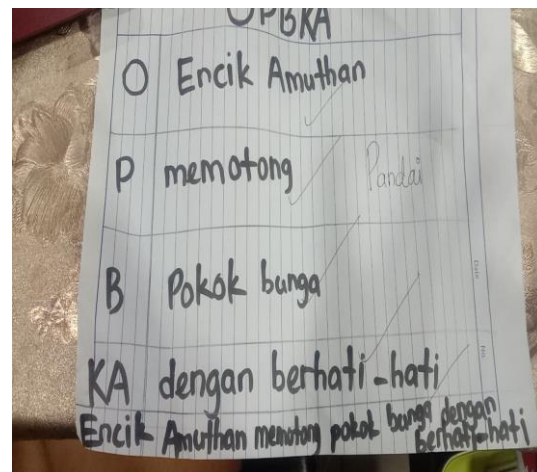 OPBKA
O Encik Amuthan
P memotong Pandai
B Pokok bunga
KA dengan berhati-hati
Encik Amuthan memotong pokok bunga dengan
berhati-hati